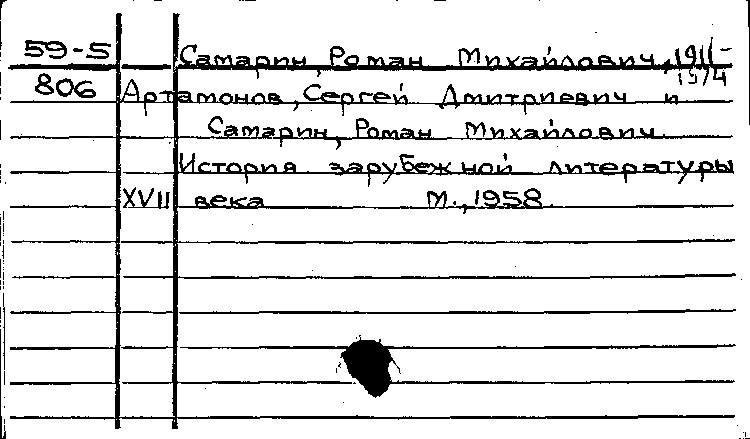 59-5 Самарин, Роман Михайлович, 1911-
1974
806 Артамонов, Сергей Дмитриевич и
Самарин, Роман Михайлович.
История зарубежной литературы
XVII века М., 1958.